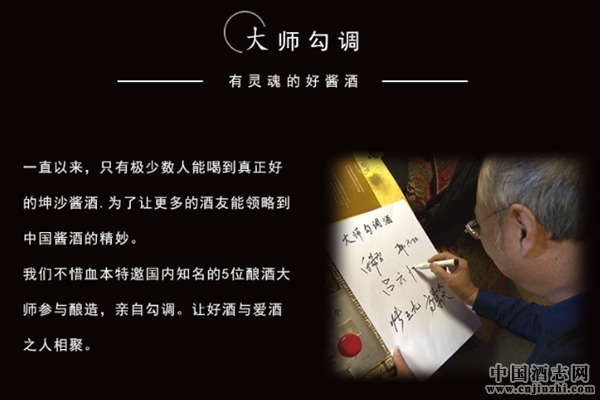 大师勾调
有灵魂的好酱酒
一直以来，只有极少数人能喝到真正好
的坤沙酱酒.为了让更多的酒友能领略到
中国酱酒的精妙。
我们不惜血本特邀国内知名的5位酿酒大
师参与酿造，亲自勾调。让好酒与爱酒
之人相聚。
大师勾调酒
中国酒志网
www.cnjiuzhi.com